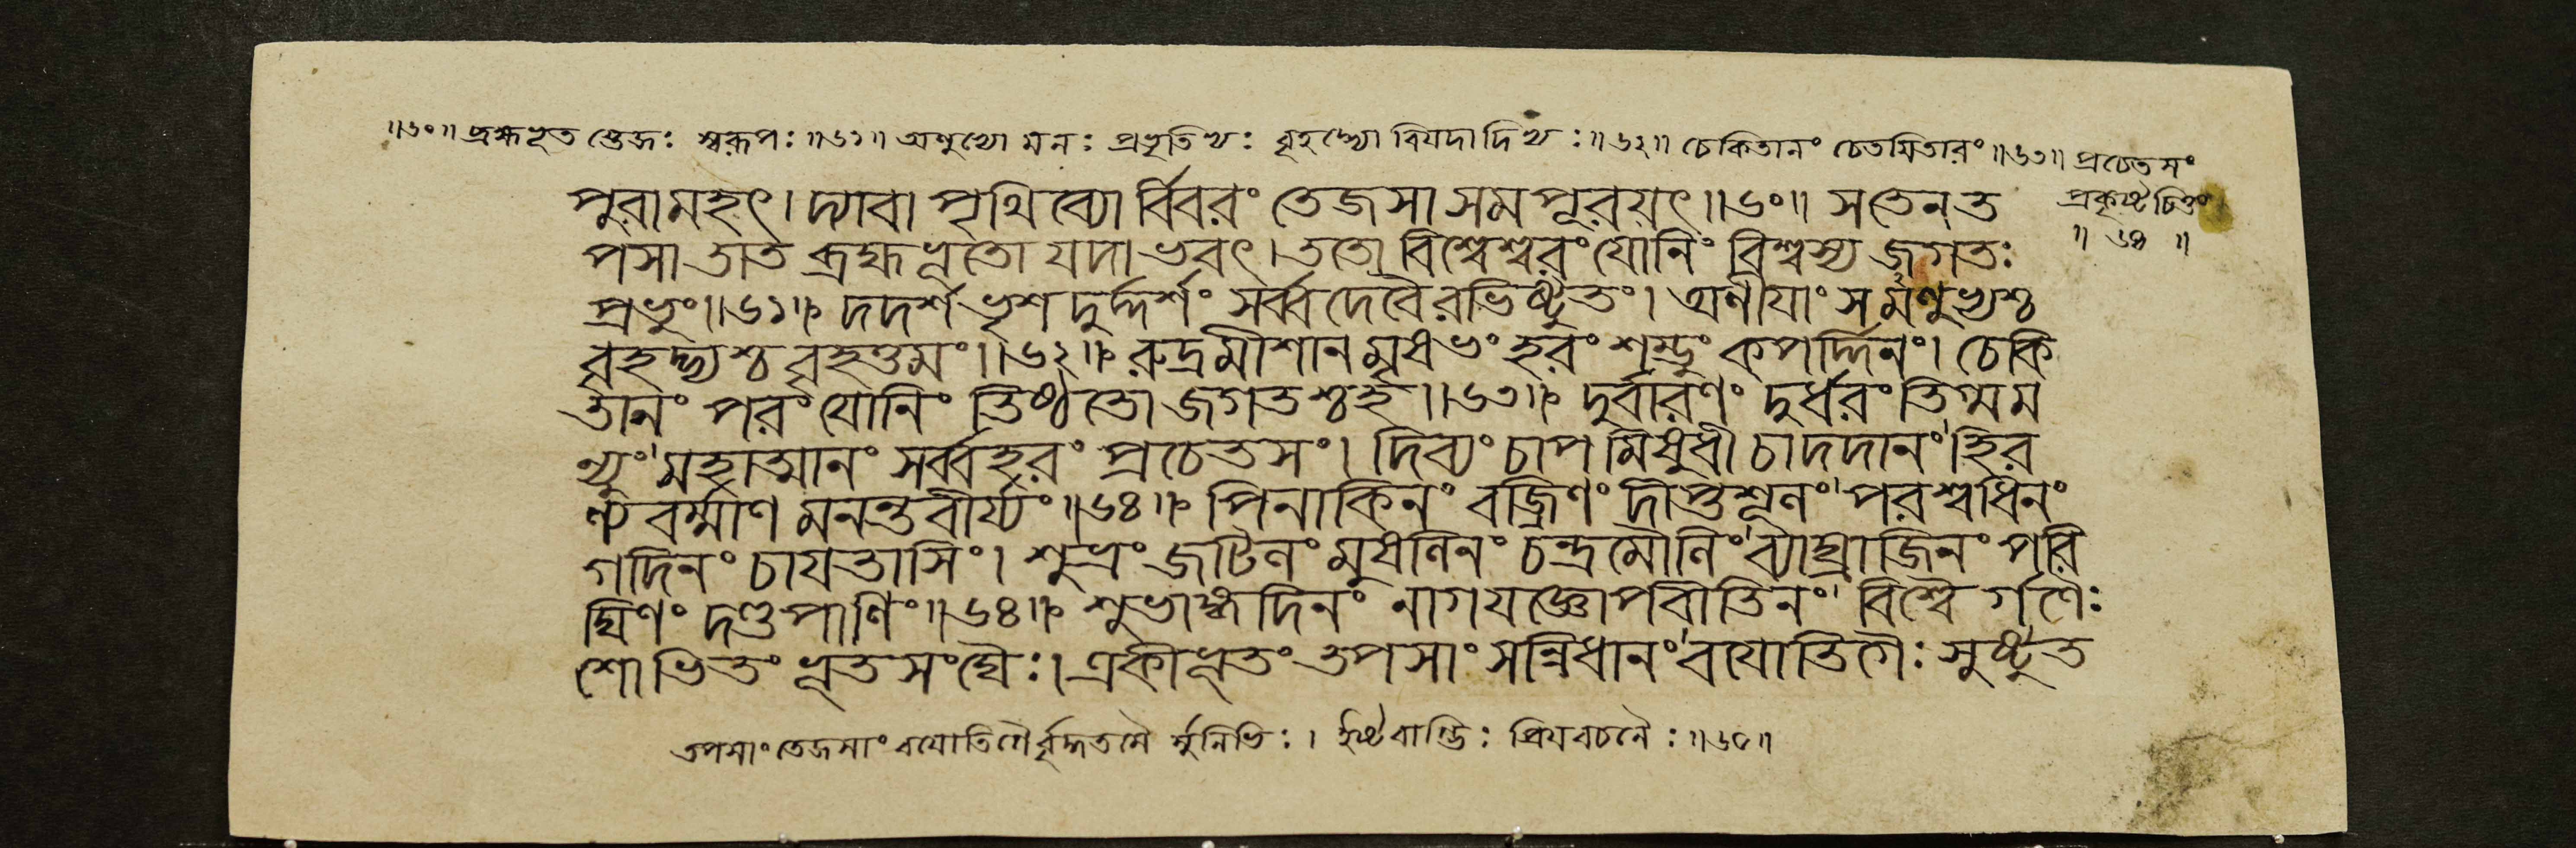 ॥৬০॥ ব্রহ্মভূতস্তেজঃ স্বরূপঃ ॥৬১॥ অণুভ্যো মনঃ প্রভৃতিভ্যঃ বৃহদ্ভ্যো বিয়দাদিভ্যঃ ॥৬২॥ চেকিতানং চেতয়িতারং ॥৬৩॥ প্রচেতসং
প্রকৃষ্টচিত্তং
॥ ৬৪ ॥
পুরা মহৎ। দ্যাবা পৃথিব্যোর্বিবরং তেজসা সমপূরয়ৎ ॥৬০॥ স তেন ত
পসা তাত ব্রহ্মভূতো যদাভবৎ। ততো বিশ্বেশ্বরং যোনিং বিশ্বস্য জগতঃ
প্রভুং ॥৬১॥ দদর্শ ভৃশদুর্দ্দর্শং সর্ব্বদেবৈরভিষ্টুতং। অণীয়াংসমণুভ্যশ্চ
বৃহদ্ভ্যশ্চ বৃহত্তমং ॥৬২॥ রুদ্রমীশানমৃষভং হরং শম্ভুং কপর্দ্দিনং। চেকি
তানং পরং যোনিং তিষ্ঠতো জগতশ্চ হ ॥৬৩॥ দুর্বারণং দুর্ধরং তিগ্মম
ন্যুং মহাত্মানং সর্ব্বহরং প্রচেতসং। দিব্যং চাপমিষুধী চাদদানং হির
ণ্যবর্ম্মাণমনন্তবীর্য্যং ॥৬৪॥ পিনাকিনং বজ্রিণং দীপ্তশূলং পরশ্বধিনং
গদিনং চায়তাসিং। শুভ্রং জটিলং মুষলিনং চন্দ্রমৌলিং ব্যাঘ্রাজিনং পরি
ঘিণং দণ্ডপাণিং ॥৬৪॥ শুভাঙ্গদিনং নাগযজ্ঞোপবীতিনং বিশ্বৈর্গণৈঃ
শোভিতং ভূতসংঘৈঃ। একীভূতং তপসাং সন্নিধানং বয়োতিগৈঃ সুষ্টুত
তপসাং তেজসাং বয়োতিগৈর্বৃদ্ধতমৈর্মুনিভিঃ। ইষ্টবাগ্ভিঃ প্রিয়বচনৈঃ ॥৬৫॥